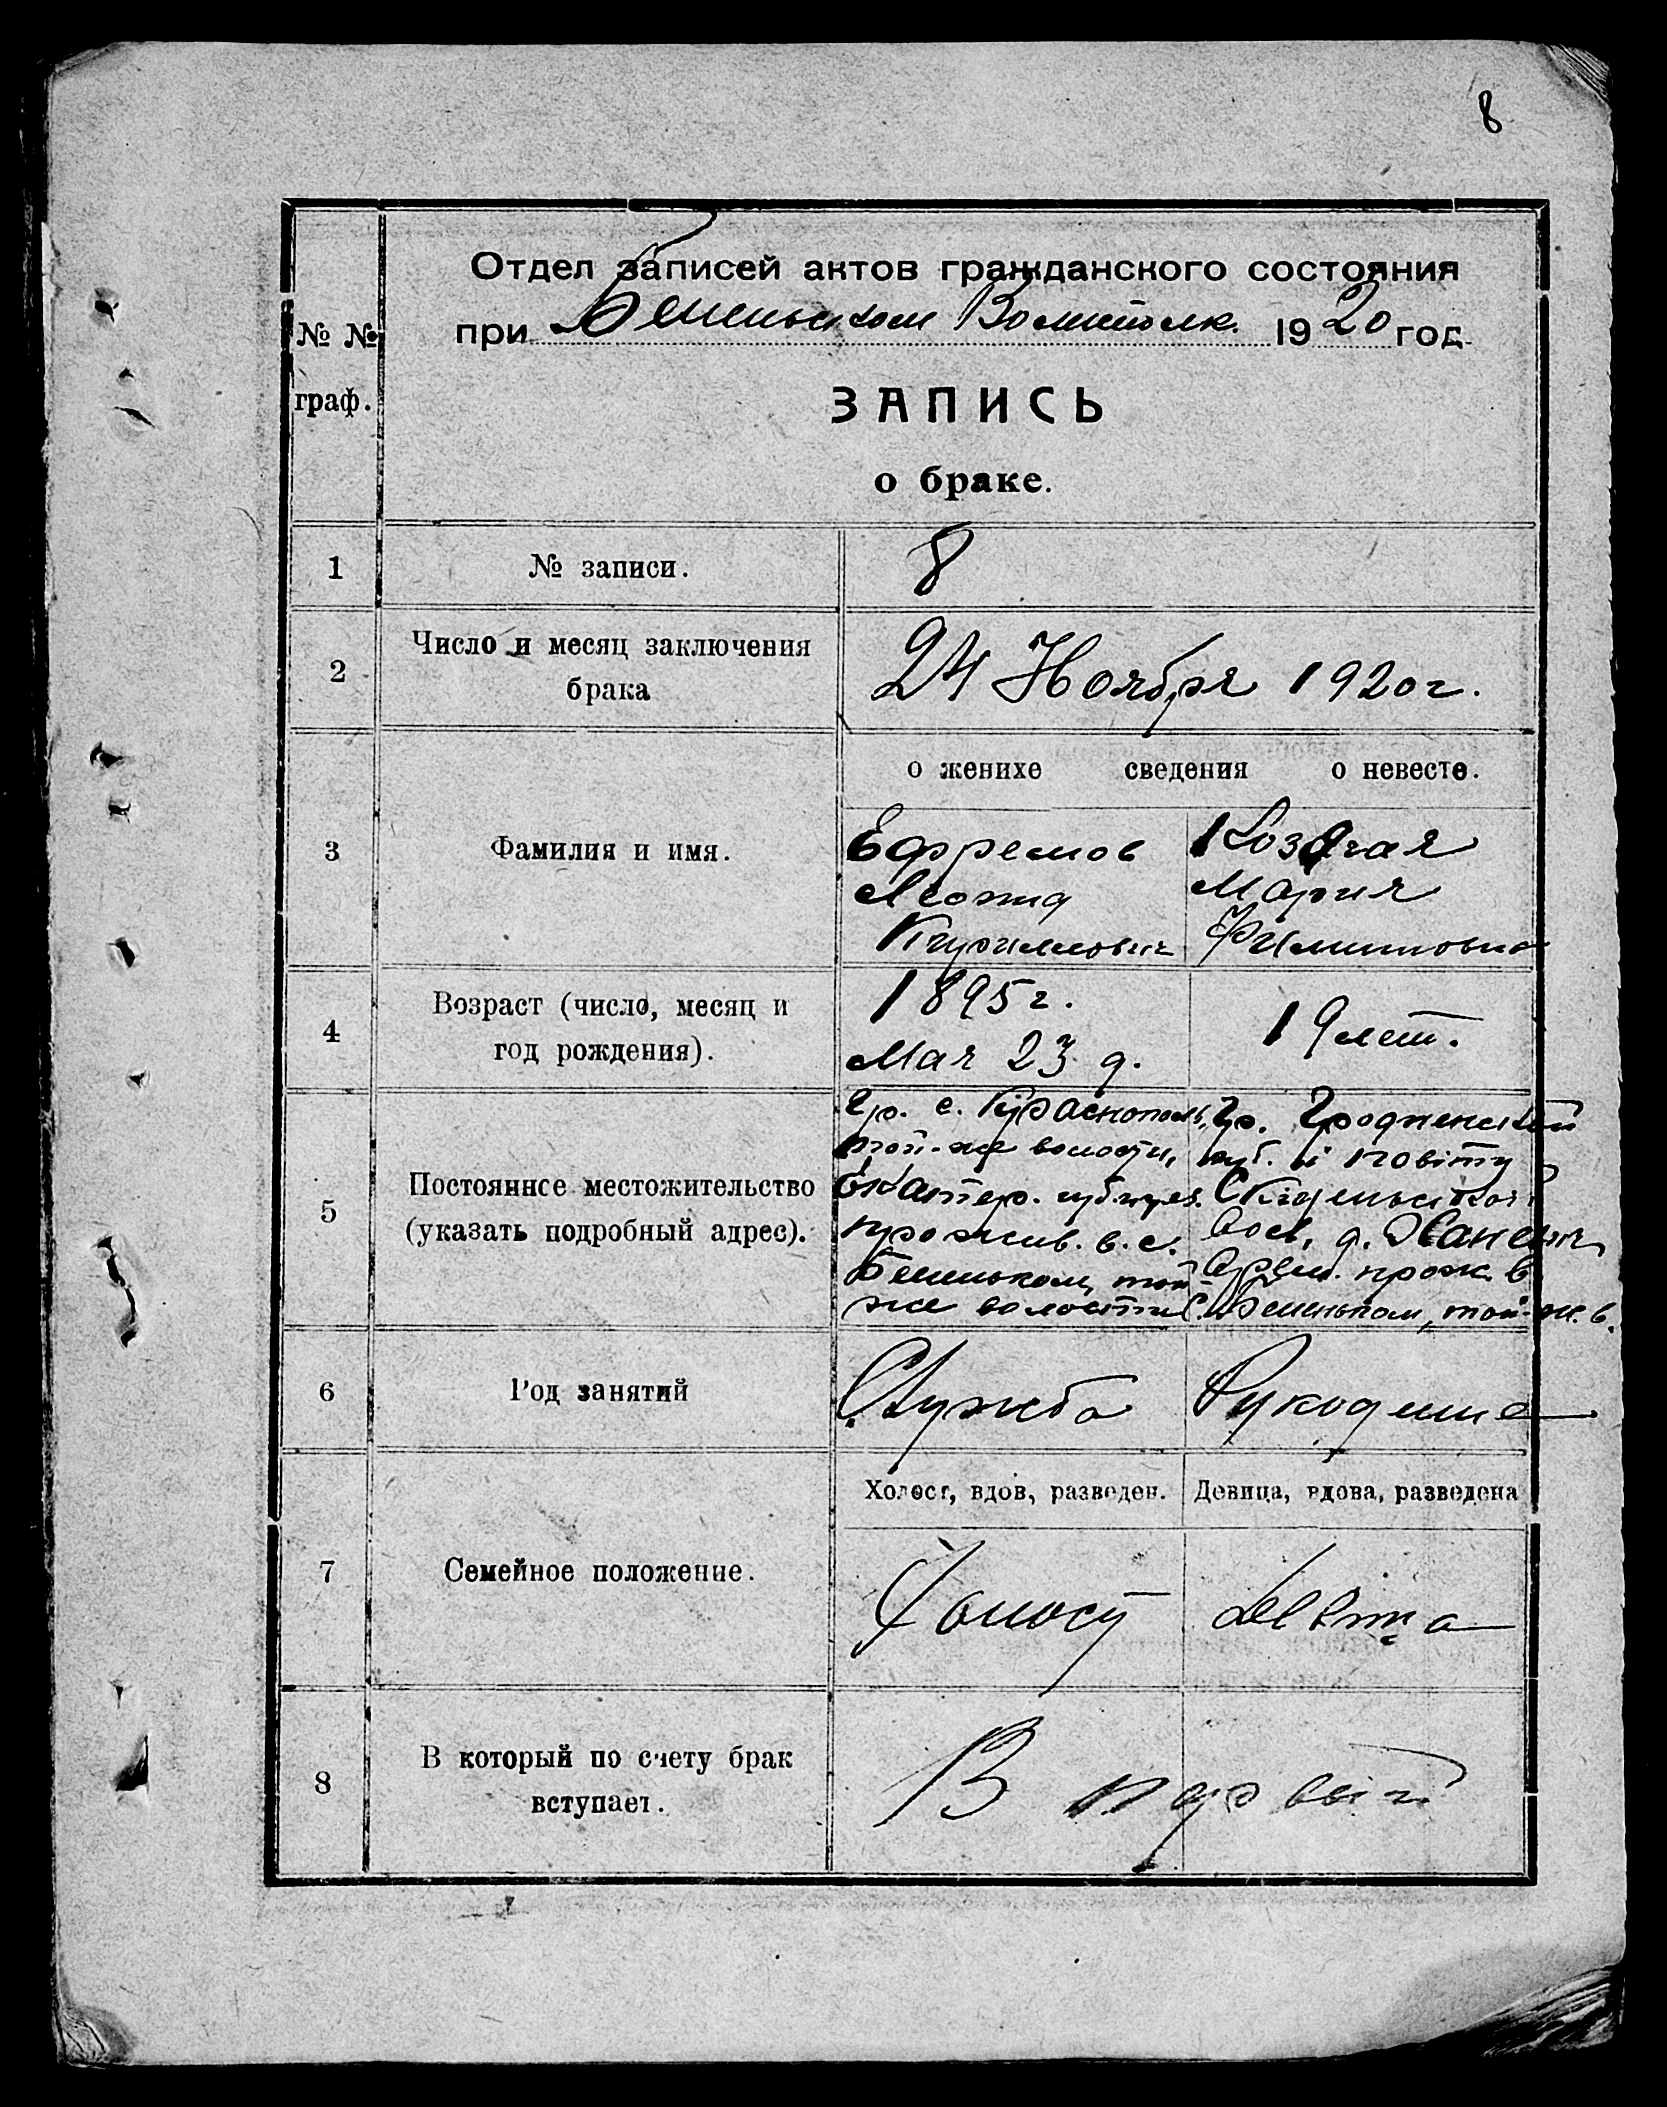 8
Отдел записей актов гражданского состояния
при Волисполк. 1920 год.
№ №
граф.
ЗАПИСЬ
о браке.
1 № записи. 8
2 Число и месяц заключения
брака
24 Ноября 1920 г.
о женихе сведения о невесте.
3 Фамилия и имя.
Ефремов
Леонид
Кириллович
Мария
Филиповна
4 Возраст (число, месяц и
год рождения).
1895 г.
Мая 23 д.
19 лет.
5 Постоянное местожительство
(указать подробный адрес).
Гр. с. Краснополь,
той-же волости,
Екатер. губ.
прожив. в. с.
той-
же волости
Гр. Гродненской
губ. і повіту
вол. д.
прож. в
с. той-ж. в.
6 Род занятий
Служба
Рукоделие
Холост, вдов, разведен.
Девица, вдова, разведена
7 Семейное положение.
Холост
Девица
8 В который по счету брак
вступает.
В первый